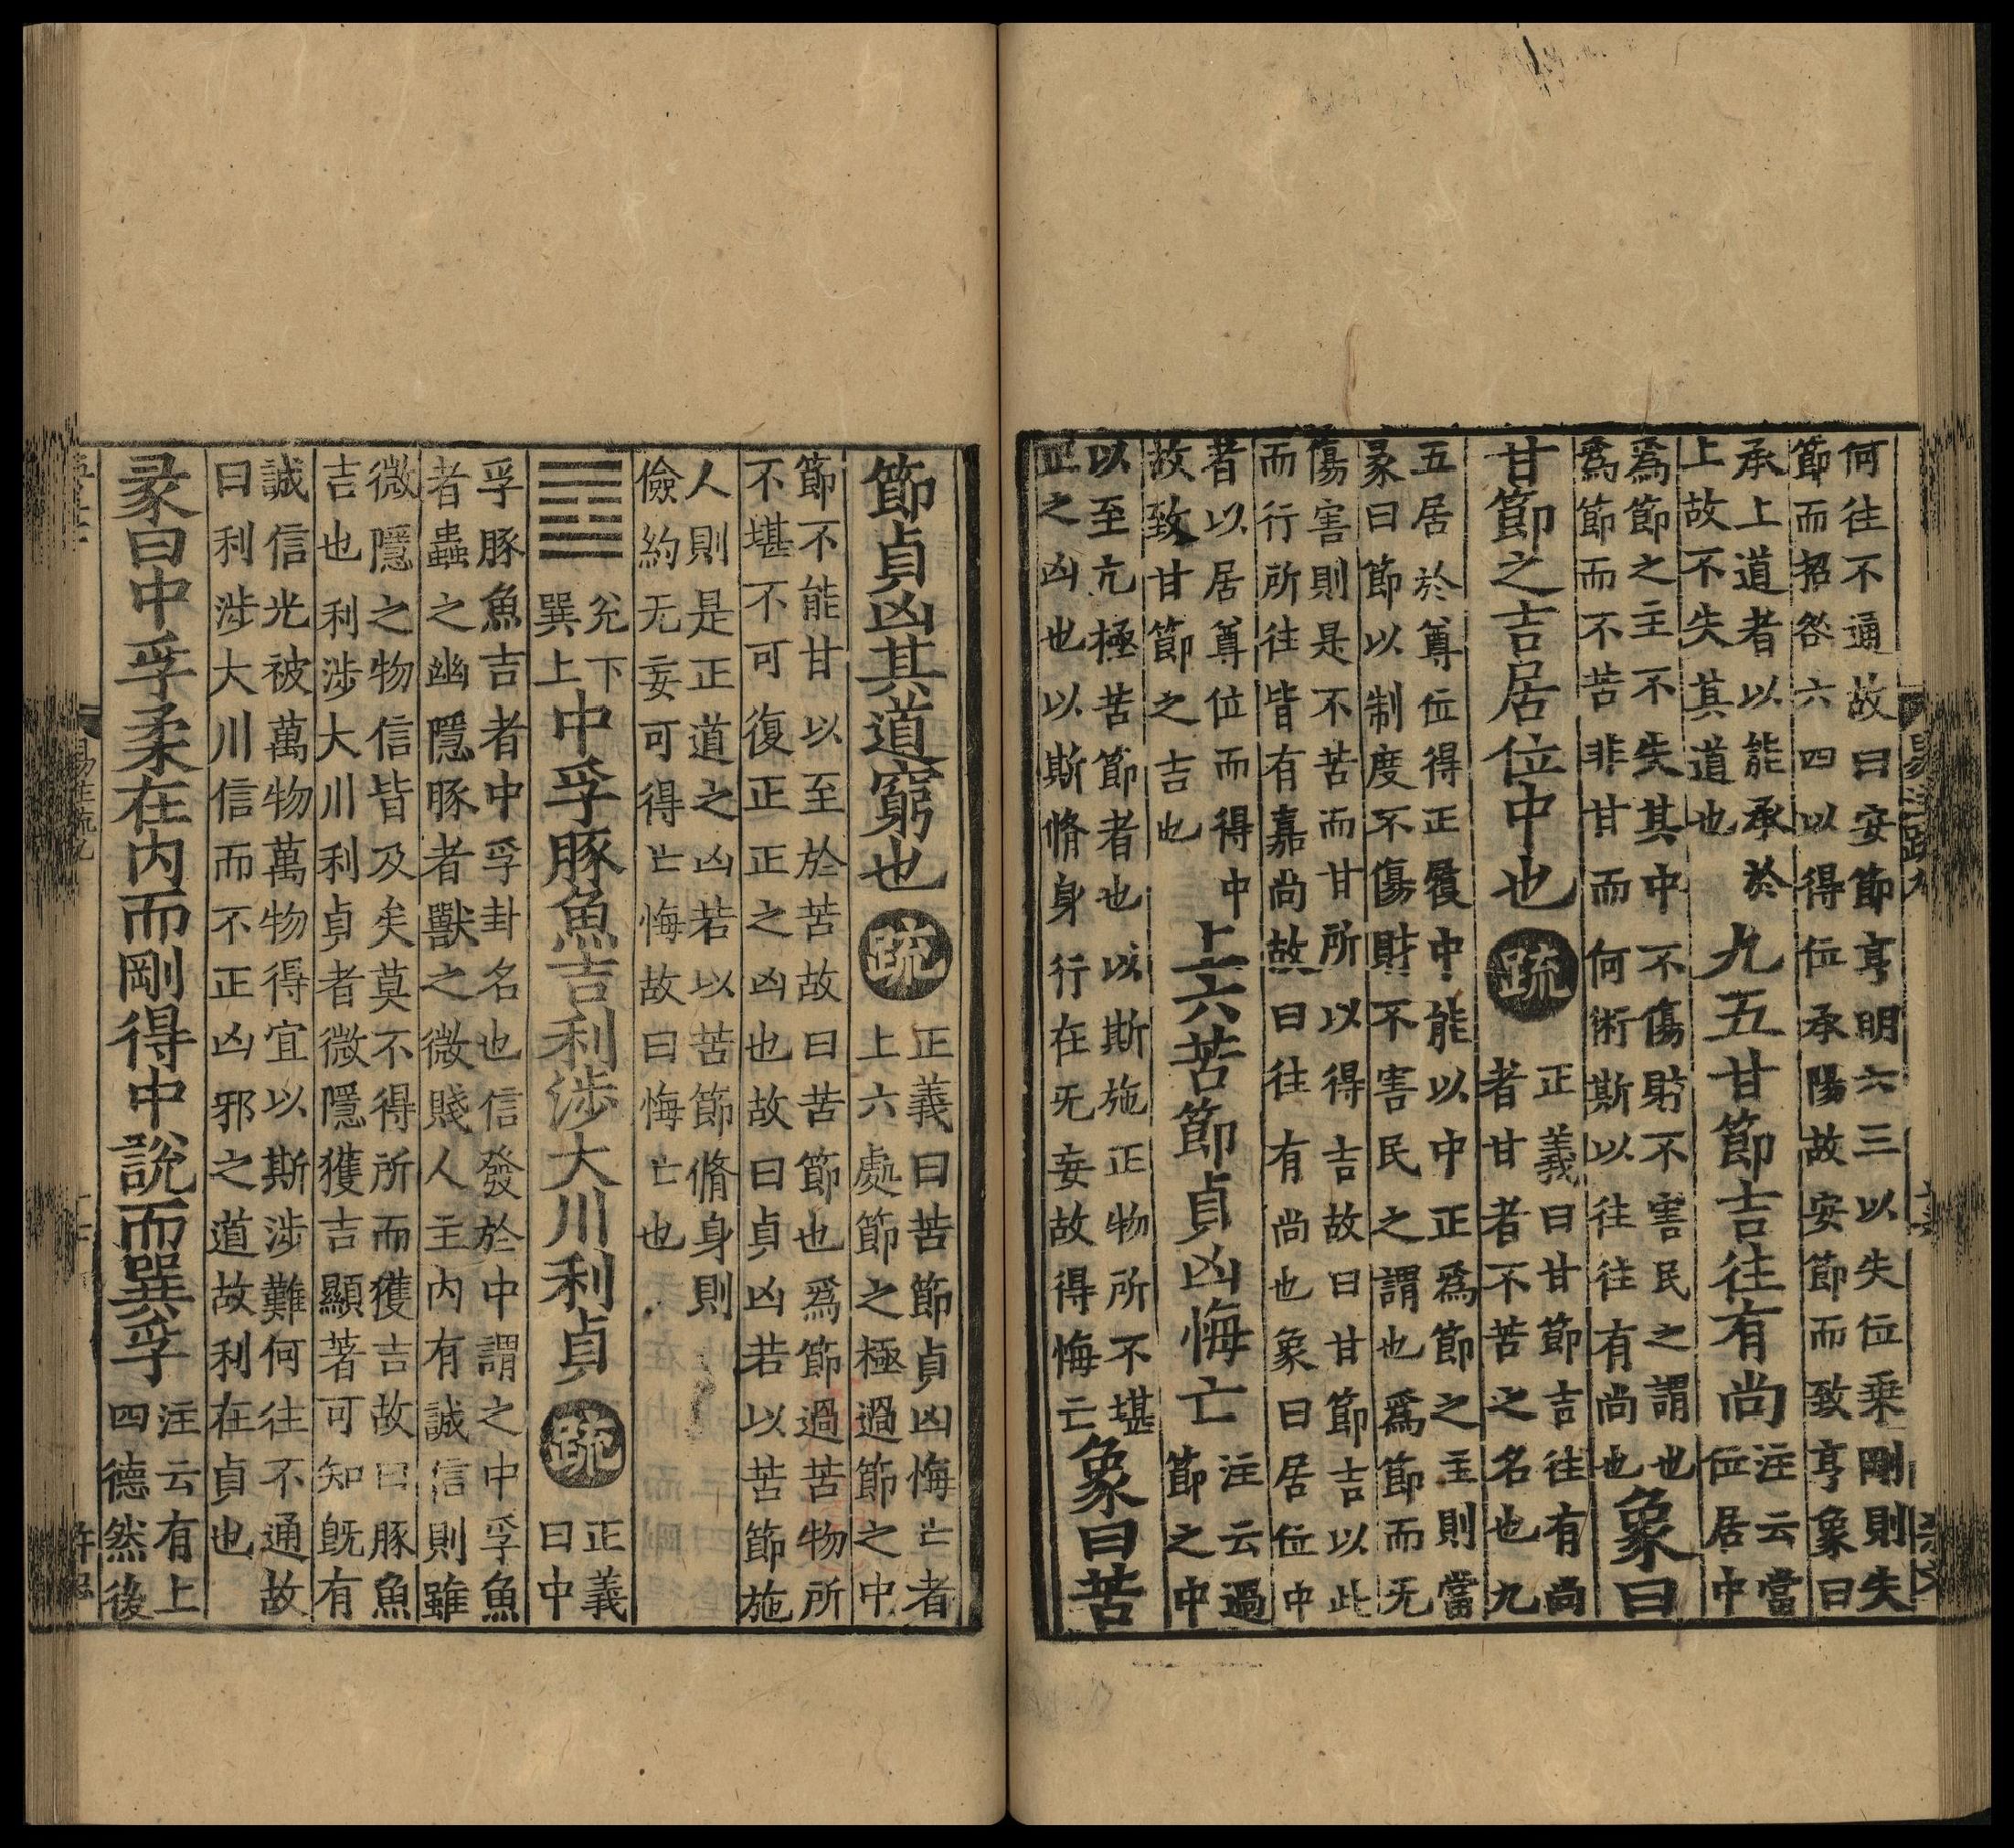 何往不通故曰安節亨明六三以失位乗剛則失
節而招咎六四以得位承陽故安節而致亨象曰
承上道者以能承於
上故不失其道也
九五甘節吉往有尚
注云當
位居中
爲節之主不失其中不傷財不害民之謂也
爲節而不苦非甘而何術斯以往往有尚也
象曰
甘節之吉居位中也
疏
正義曰甘節吉往有尚
者甘者不苦之名也九
五居於尊位得正履中能以中正爲節之主則當
彖曰節以制度不傷財不害民之謂也爲節而无
傷害則是不苦而甘所以得吉故曰甘節吉以此
而行所往皆有嘉尚故曰往有尚也象曰居位中
者以居尊位而得中
故致甘節之吉也
上六苦節貞凶悔亡
注云過
節之中
以至亢極苦節者也以斯施正物所不堪
正之凶也以斯脩身行在无妄故得悔亡
象曰苦
節貞凶其道窮也
疏
正義曰苦節貞凶悔亡者
上六處節之極過節之中
節不能甘以至於苦故曰苦節也爲節過苦物所
不堪不可復正正之凶也故曰貞凶若以苦節施
人則是正道之凶若以苦節脩身則
儉約无妄可得亡悔故曰悔亡也
兊下
巽上
中孚豚魚吉利涉大川利貞
疏
正義
曰中
孚豚魚吉者中孚卦名也信發於中謂之中孚魚
者蟲之幽隱豚者獸之微賤人主內有誠信則雖
微隱之物信皆及矣莫不得所而獲吉故曰豚魚
吉也利涉大川利貞者微隱獲吉顯著可知旣有
誠信光被萬物萬物得宜以斯涉難何往不通故
曰利涉大川信而不正凶邪之道故利在貞也
彖曰中孚柔在內而剛得中說而巽孚
注云有上
四德然後